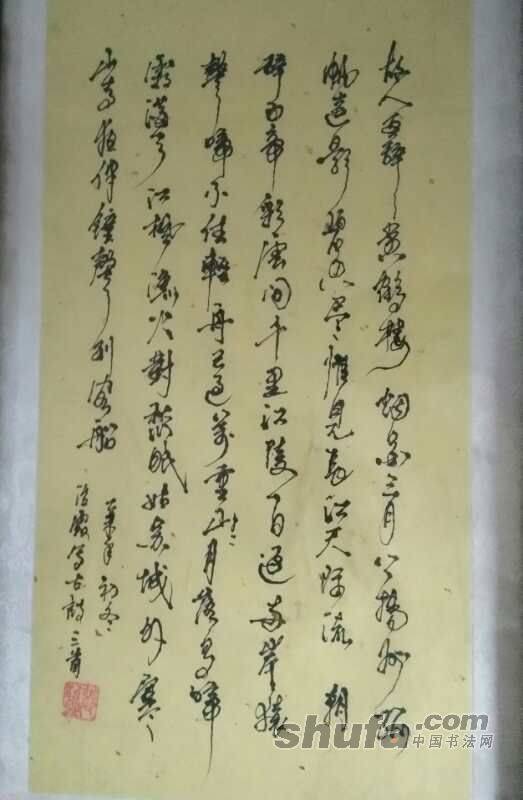 故人西辞黄鹤楼烟花三月下扬州孤
帆远影碧空尽惟见长江天际流朝
辞白帝彩云间千里江陵一日还两岸猿
声啼不住轻舟已过万重山月落乌啼
霜满天江枫渔火对愁眠姑苏城外寒
山寺夜半钟声到客船
年初冬
写古诗三首
shufa.com
中国书法网